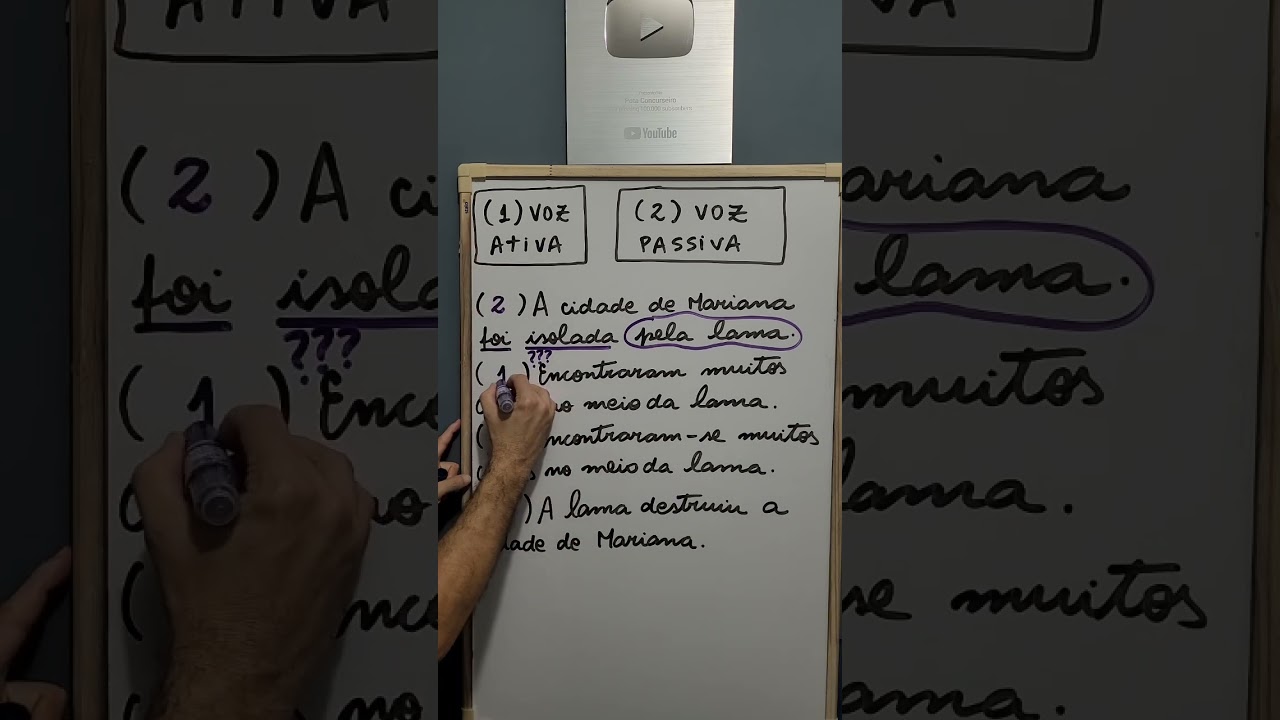 YouTube
(1) VOZ
ATIVA
(2) VOZ
PASSIVA
(2) A cidade de Mariana
foi isolada pela lama.
???
(1) Encontraram muitos
no meio da lama.
encontraram-se muitos
no meio da lama.
) A lama destruiu a
dade de Mariana.